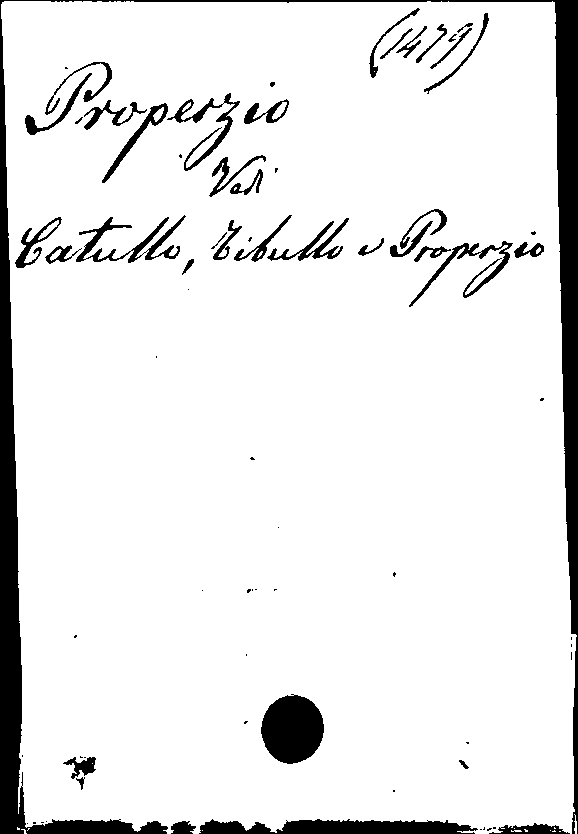 (1479)
Properzio
Vedi
Catullo, Tibullo e Properzio